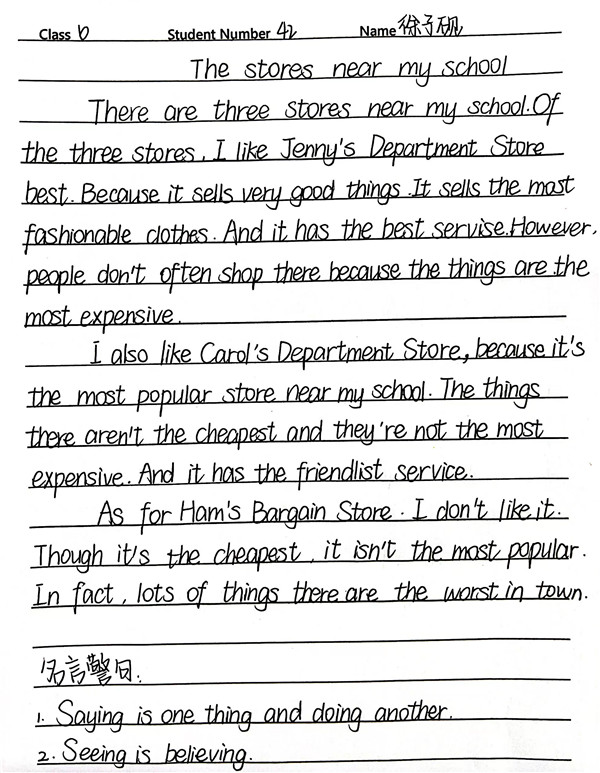 Class 6 Student Number 42 Name 徐予砚
The stores near my school
There are three stores near my school. Of
the three stores, I like Jenny's Department Store
best. Because it sells very good things. It sells the most
fashionable clothes. And it has the best servise. However,
people don't often shop there because the things are the
most expensive.
I also like Carol's Department Store, because it's
the most popular store near my school. The things
there aren't the cheapest and they're not the most
expensive. And it has the friendlist service.
As for Ham's Bargain Store. I don't like it.
Though it's the cheapest, it isn't the most popular.
In fact, lots of things there are the worst in town.
名言警句:
1. Saying is one thing and doing another.
2. Seeing is believing.